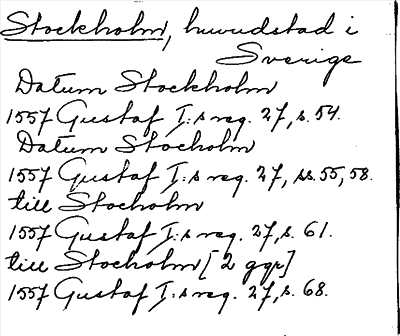 Stockholm, huvudstad i
Sverige
Datum Stockholm
1557 Gustaf I:s reg. 27, s. 54.
Datum Stocholm
1557 Gustaf I:s reg. 27, ss. 55, 58.
till Stocholm
1557 Gustaf I:s reg. 27, s. 61.
till Stocholm [2 ggr]
1557 Gustaf I:s reg. 27, s. 68.